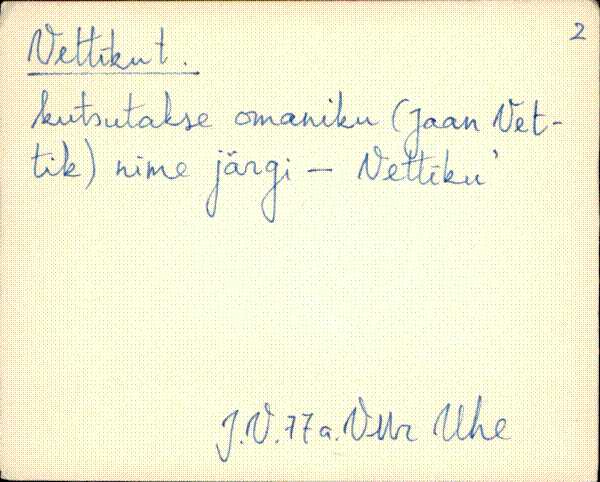 2
Vettikut.
kutsutakse omaniku (Jaan Vet-
tik) nime järgi – Vettiku'
J.V. 77 a. VMr Uhe